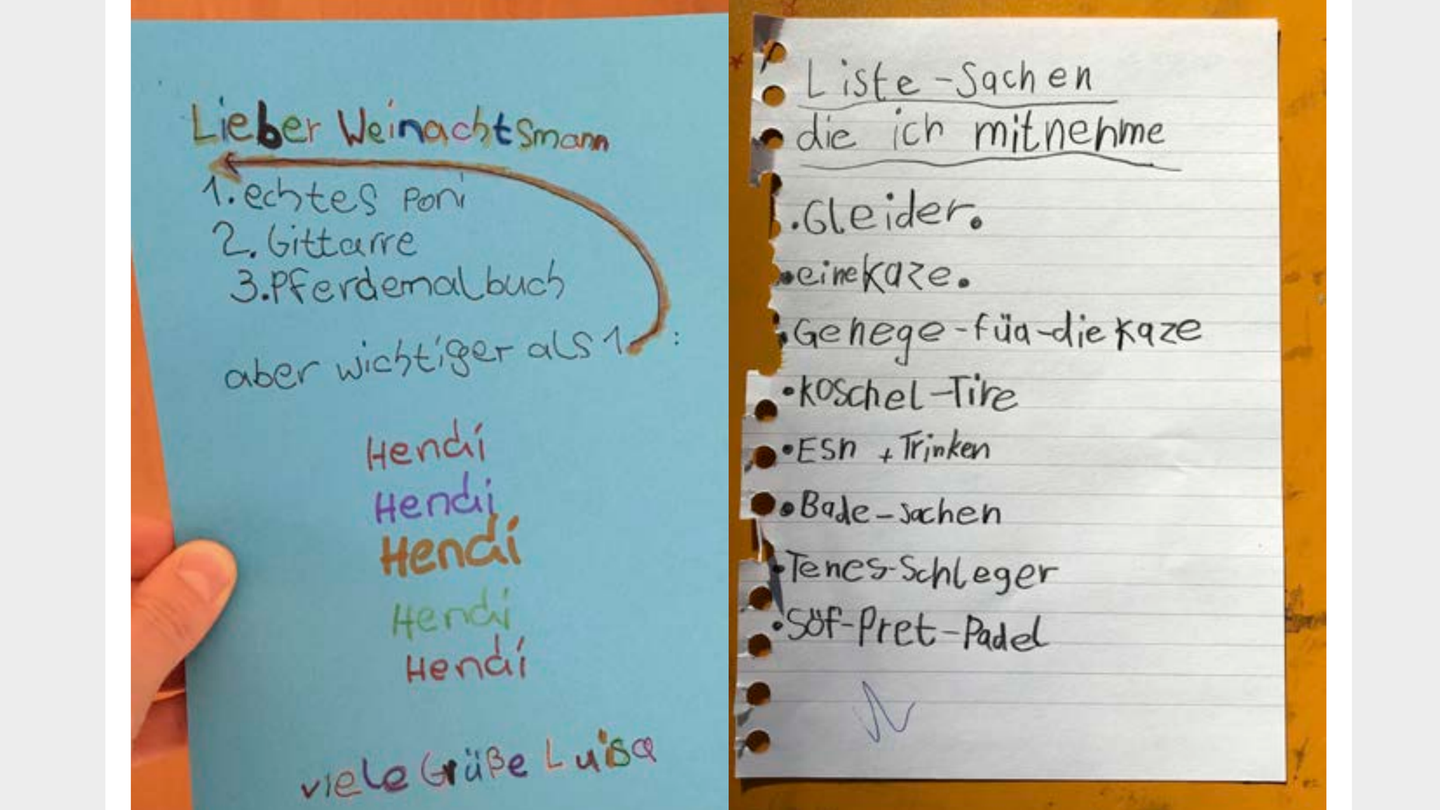 Lieber Weinachtsmann
1. echtes Poni
2. Gittarre
3. Pferdemalbuch
aber wichtiger als 1 :
Hendi
Hendi
Hendi
Hendi
Hendi
viele Grüße Luisa
Liste - Sachen
die ich mitnehme
• Gleider.
• eine Kaze.
• Gehege - füa - die Kaze
• Koschel - Tire
• ESn + Trinken
• Bade - sachen
• Tenes - Schleger
• Söf - Pret - Padel